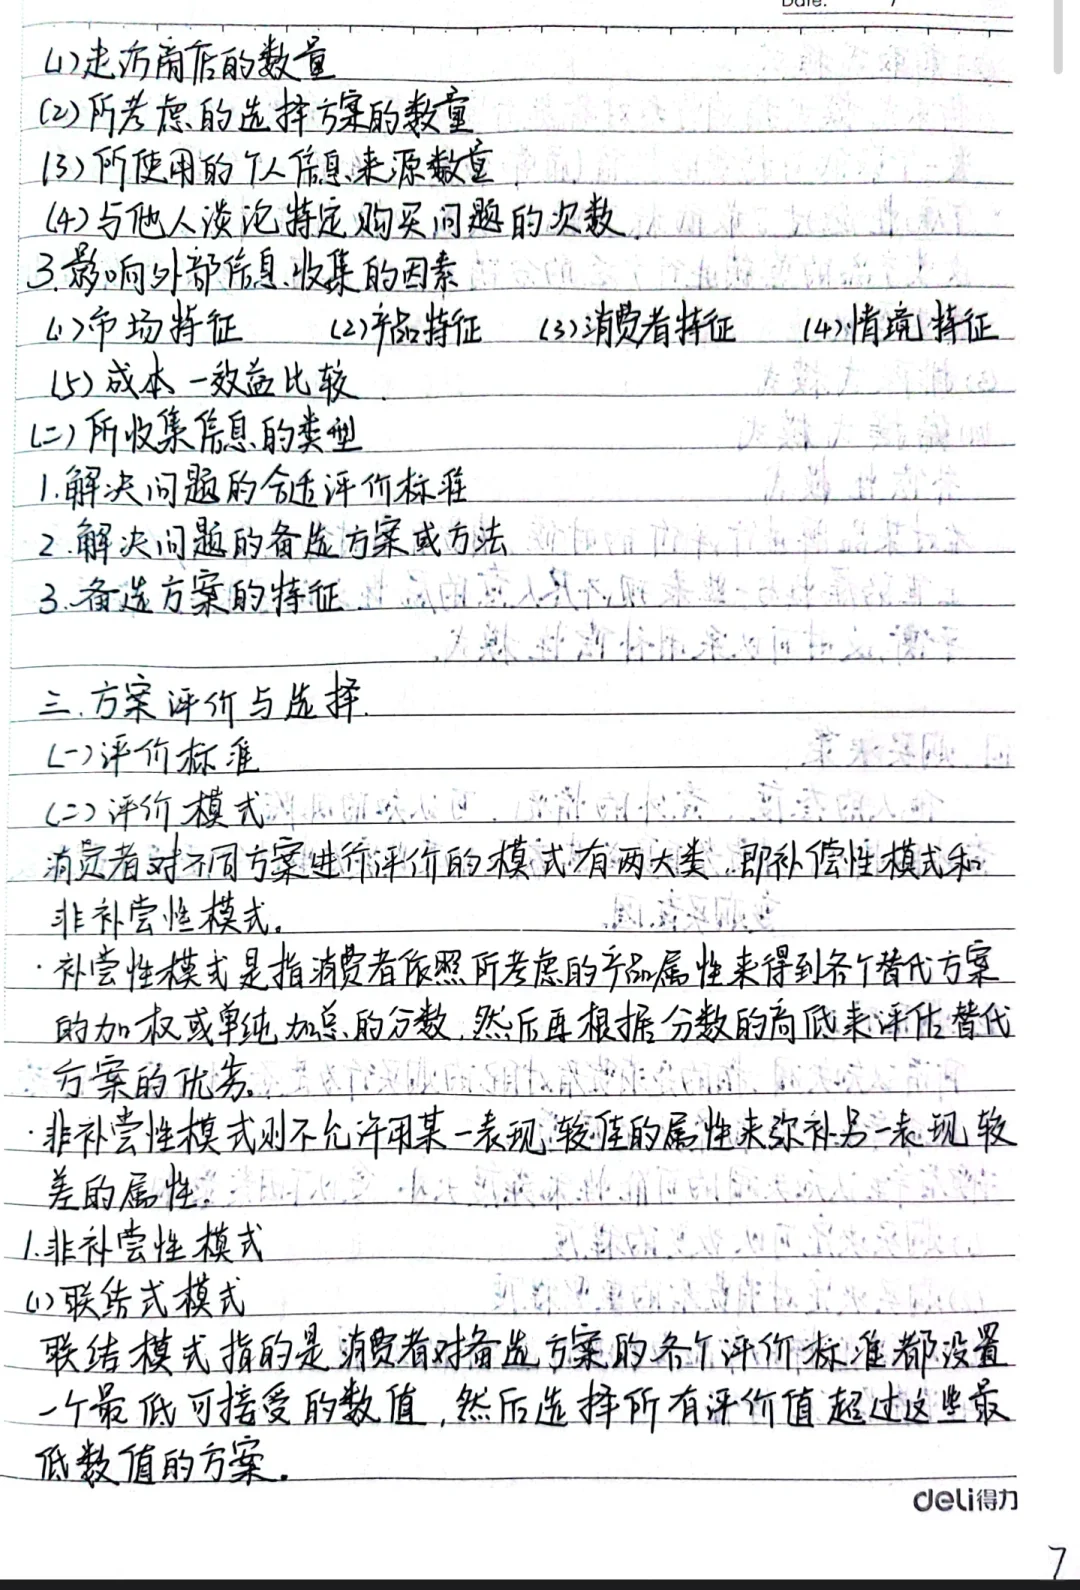 Date: /
(1)走访商店的数量
(2)所考虑的选择方案的数量
(3)所使用的个人信息来源数量
(4)与他人谈论特定购买问题的次数.
3.影响外部信息收集的因素
(1)市场特征 (2)产品特征 (3)消费者特征 (4)情境特征
(5)成本一效益比较.
(二)所收集信息的类型
1.解决问题的合适评价标准
2.解决问题的备选方案或方法
3.备选方案的特征.
三.方案评价与选择.
(一)评价标准
(二)评价模式
消费者对不同方案进行评价的模式有两大类,即补偿性模式和
非补尝性模式.
·补尝性模式是指消费者依照所考虑的产品属性来得到各个替代方案
的加权或单纯加总的分数,然后再根据分数的高低来评估替代
方案的优劣.
·非补尝性模式则不允许用某一表现较佳的属性来弥补另一表现较
差的属性.
1.非补尝性模式
(1)联结式模式
联结模式指的是消费者对备选方案的各个评价标准都设置
一个最低可接受的数值,然后选择所有评价值超过这些最
低数值的方案。
deli得力
7